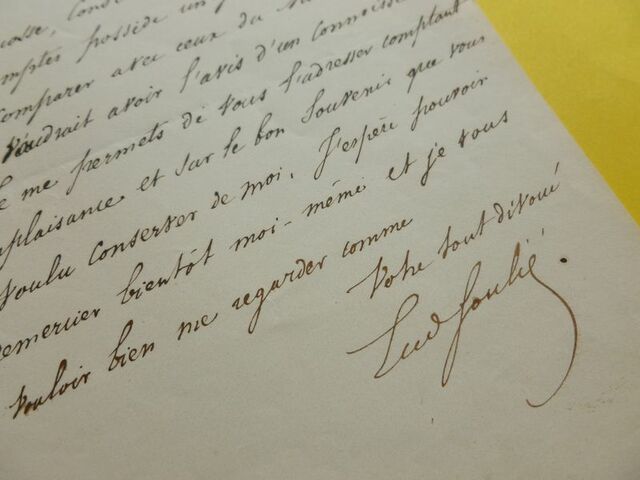 possède un
comparer avec ceux du
voudrait avoir l'avis d'un connaisse
me permets de vous l'adresser comptant
plaisance et sur le bon souvenir que vous
voulu conserver de moi. J'espère pouvoir
remercier bientôt moi-même et je vous
vouloir bien me regarder comme
Votre tout dévoué
Eud Soulié.